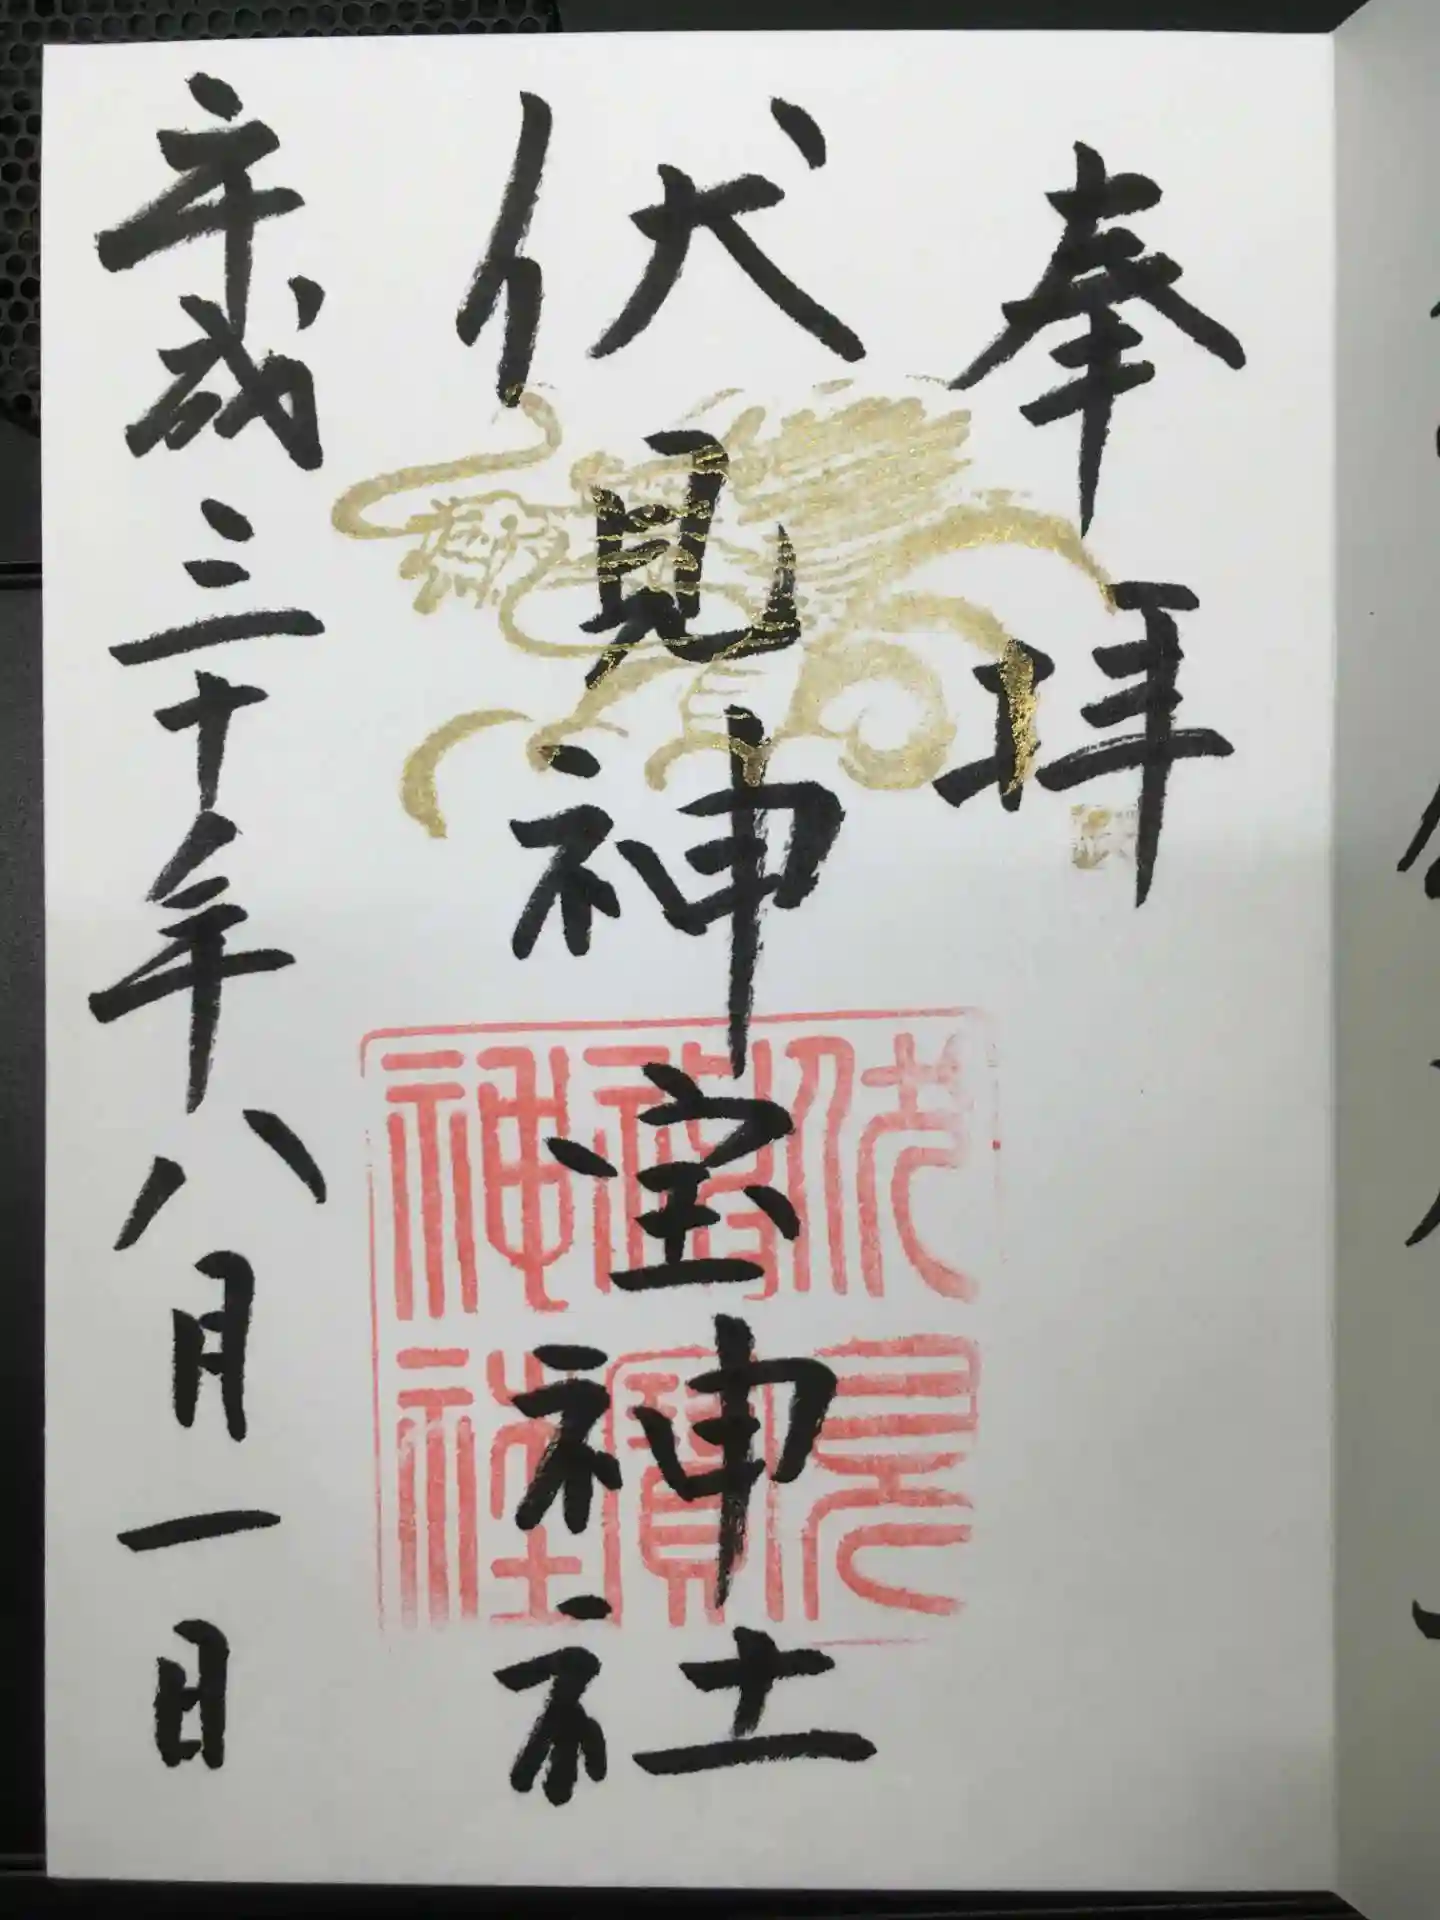 奉拝
伏見神宝神社
平成三十年八月一日
伏見
神寶
神社